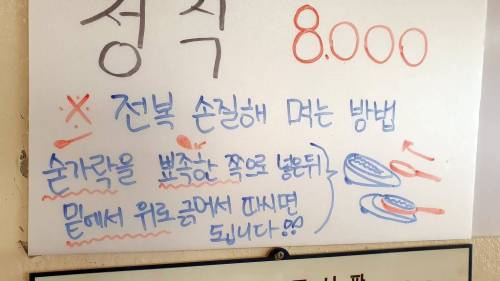 정식 8.000
※ 전복 손질해 먹는 방법
숟가락을 뾰족한 쪽으로 넣은뒤
밑에서 위로 긁어서 따시면
됩니다